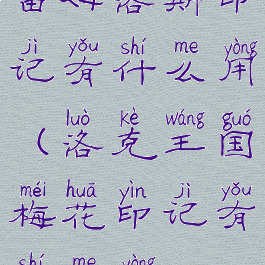 洛斯印
jì yǒu shí me yòng
记有什么用
luò kè wáng guó
(洛克王国
méi huā yìn jì yǒu
梅花印记有
shí me yòng